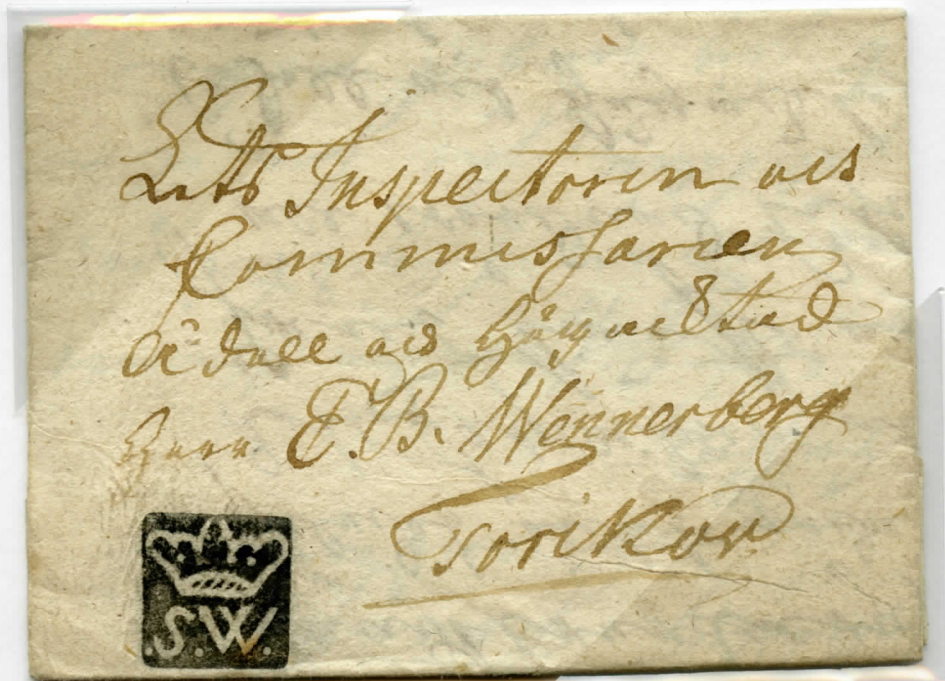 Inspectoren och
Commissarien
Ädell och
Herr E. B. Wennerberg
Torikow
.S.W.